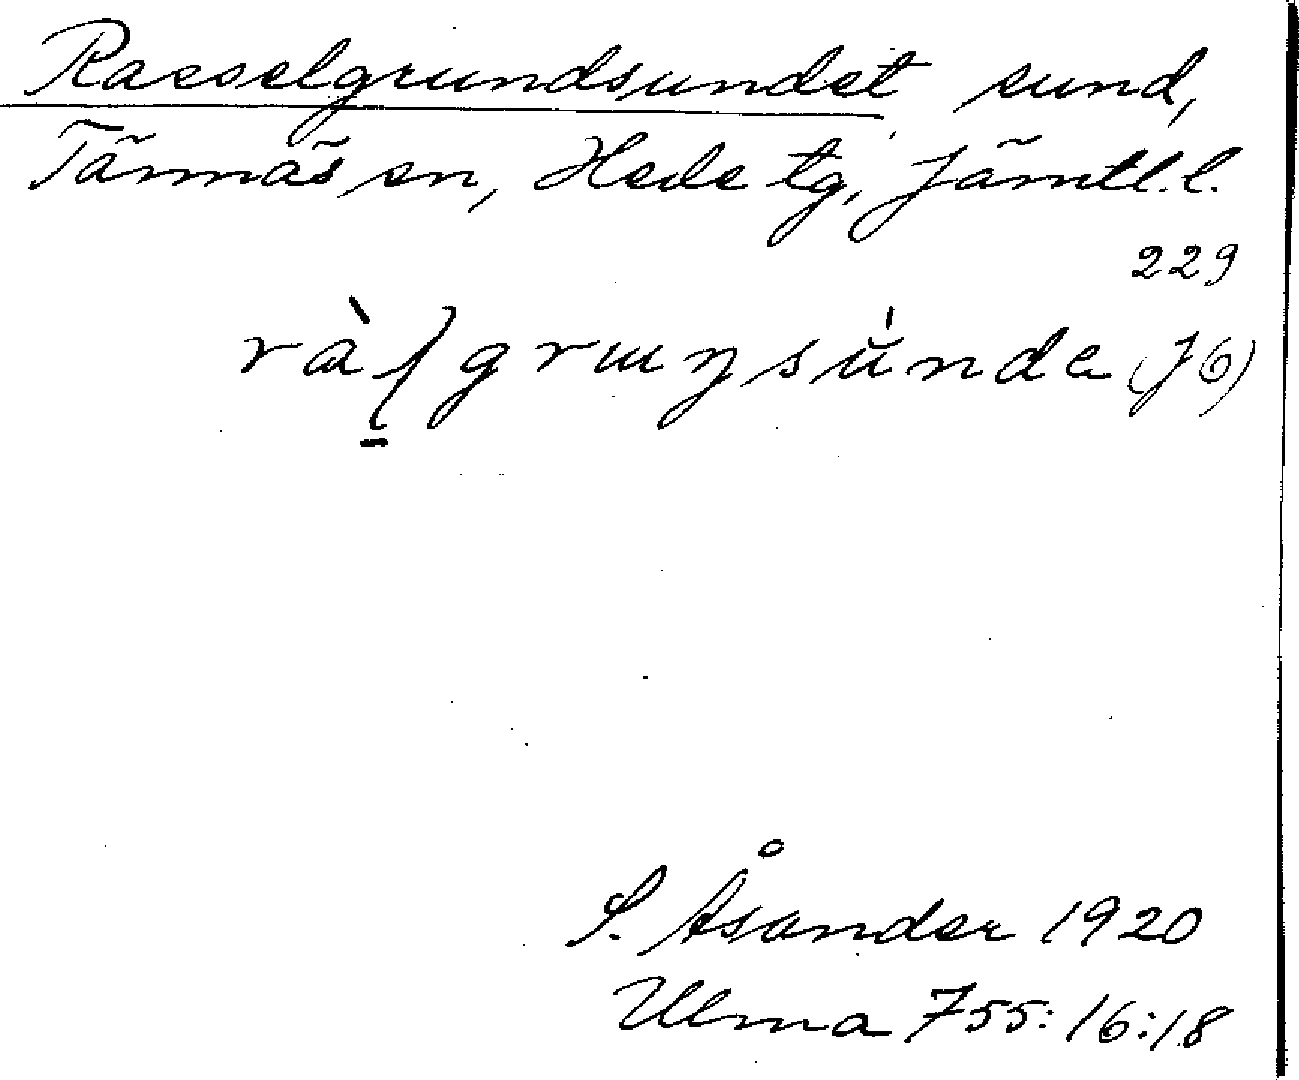 Rasselgrundsundet sund,
Tännäs sn, Hede tg, Jämtl. l.
229
(J6)
S. Åsander 1920
Ulma 755:16:18